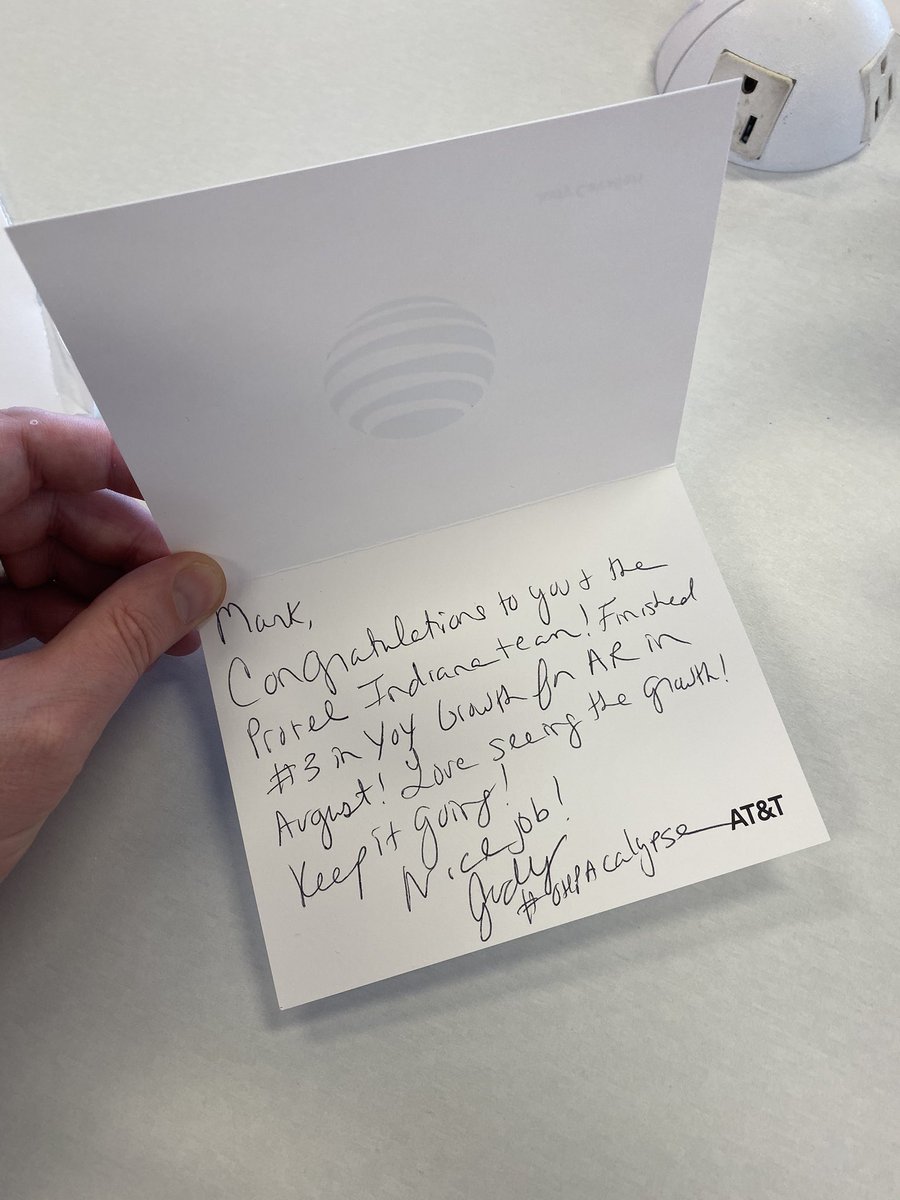 Mark,
Congratulations to you & the
Protel Indiana team! Finished
#3 in YoY Growth for AR in
August! Love seeing the growth!
Keep it going!
Nice job!
Judy
#OHPAcalypse
AT&T